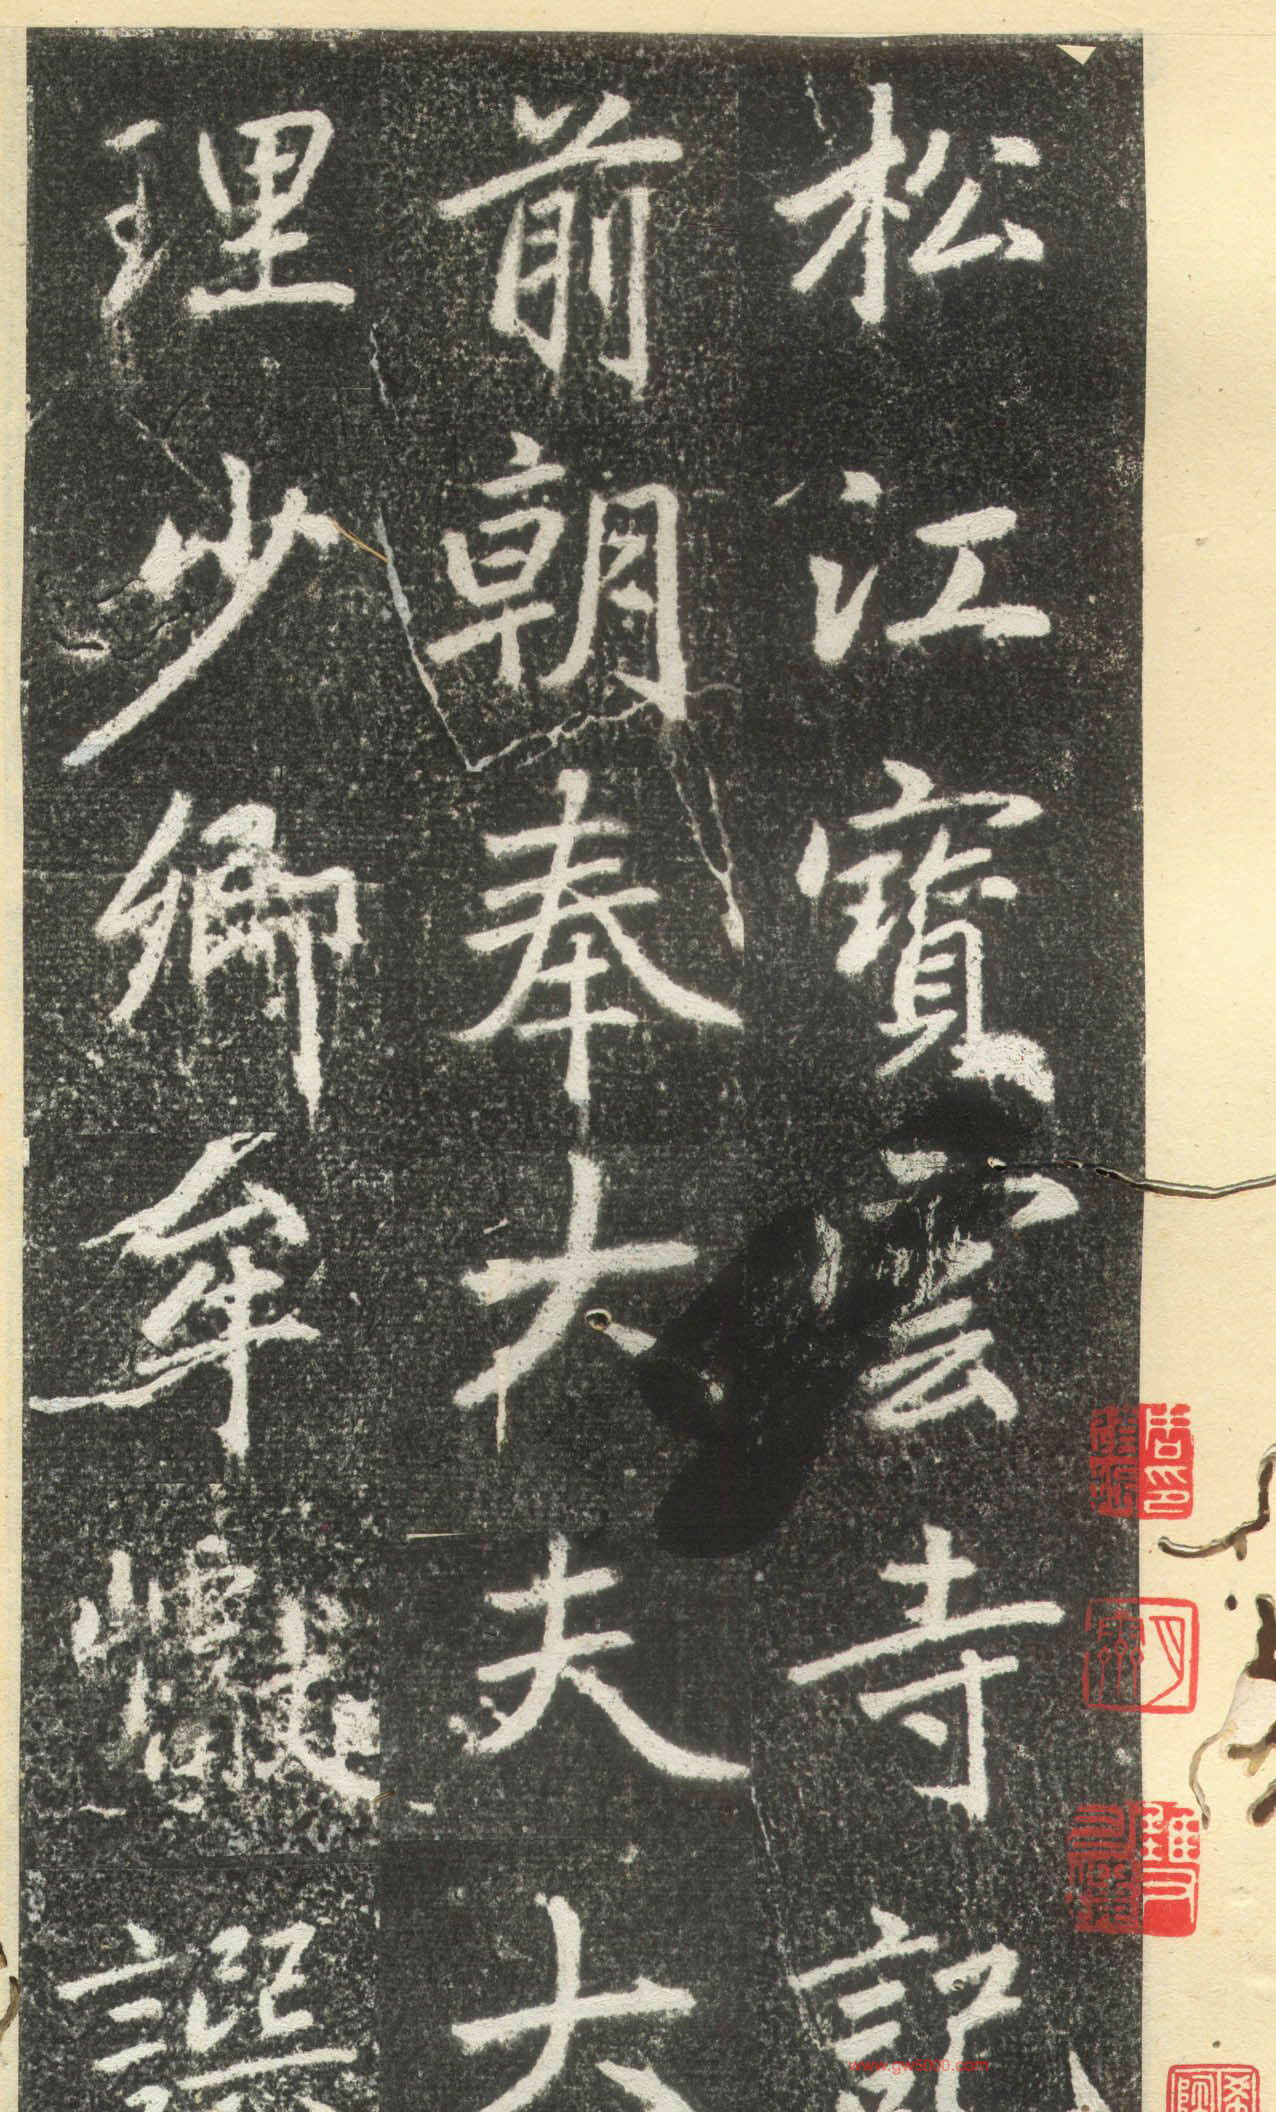 松江寶雲寺記
前朝奉大夫大
理少卿牟巘譔
www.gw5000.com